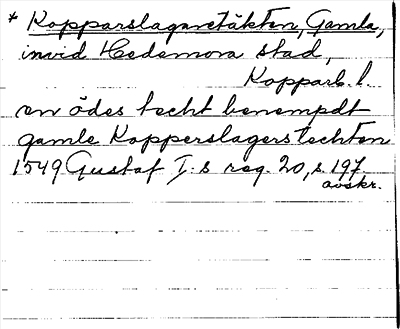 * Kopparslagaretäkten, Gamla,
invid Hedemora stad,
Kopparb. l.
en ödes techt benempdt
gamle Kopperslagerstechten
1549 Gustaf I:s reg. 20, s. 197
avskr.